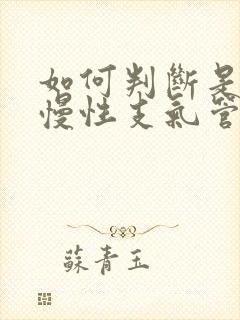 如何判斷是
慢性支氣管
蘇青玉